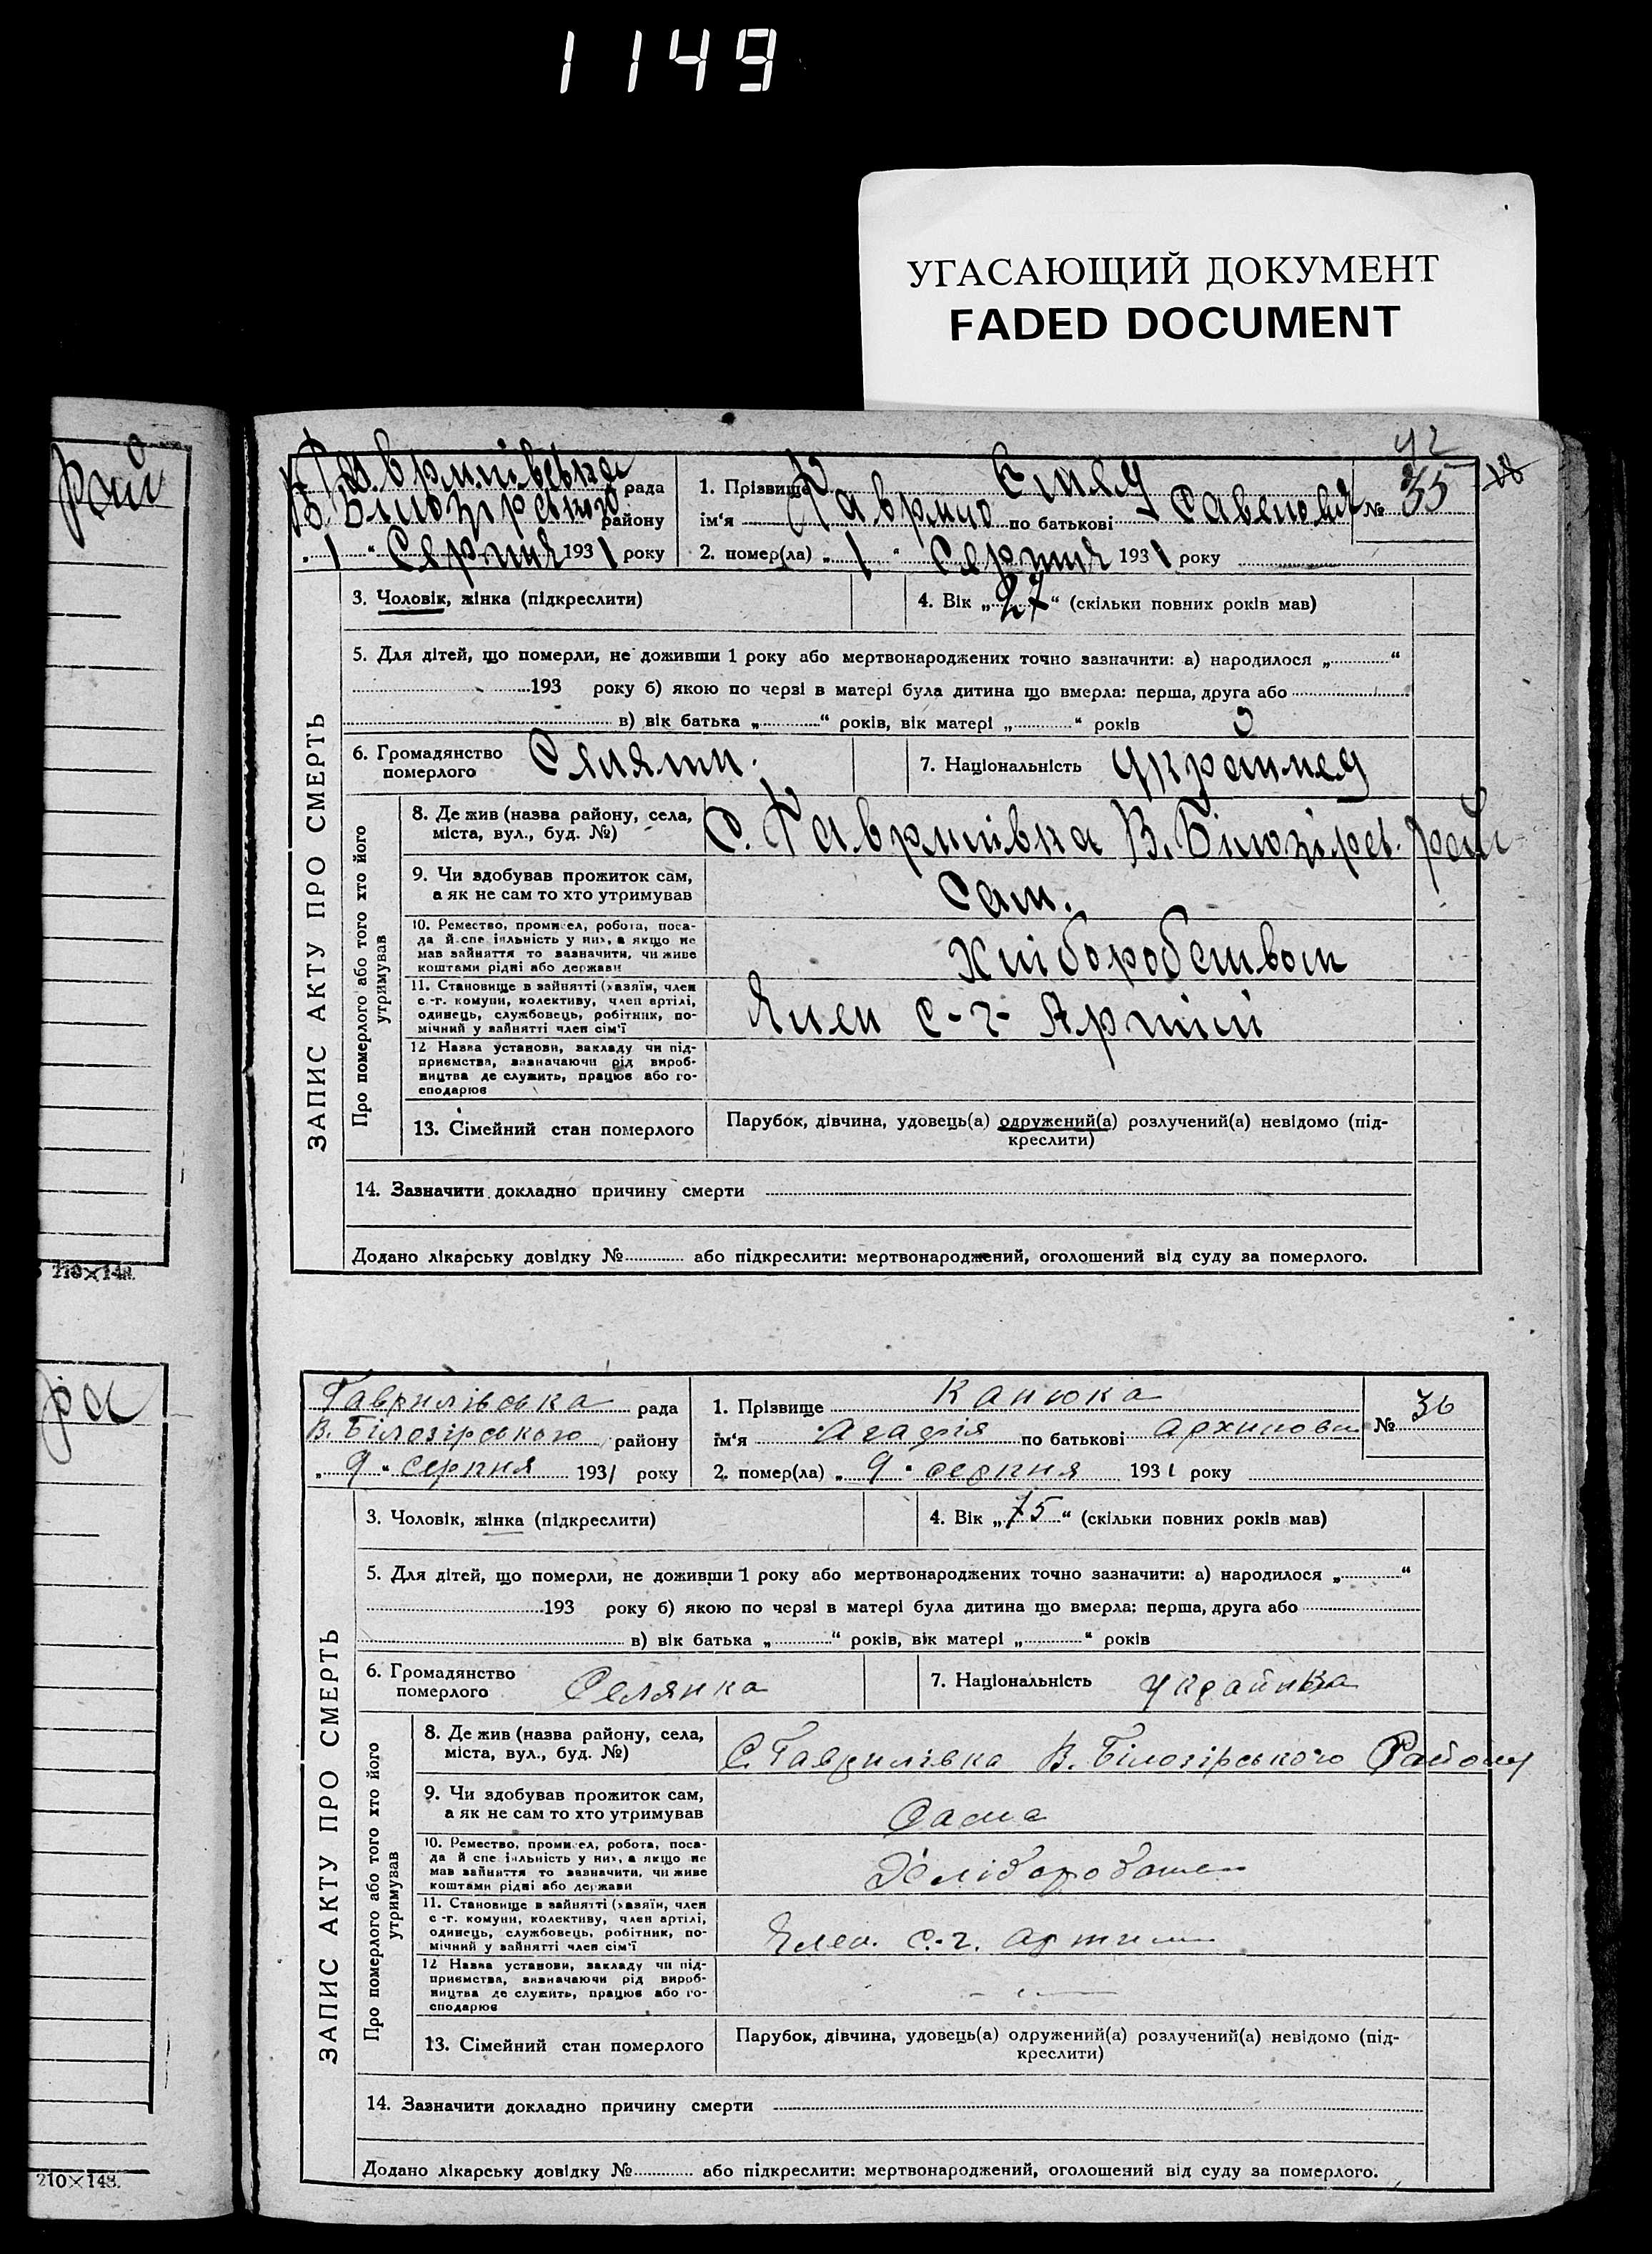 1149
УГАСАЮЩИЙ ДОКУМЕНТ
FADED DOCUMENT
рай
210×148.
ра
210×148.
42
Гаврилівська рада
В. Білозірського району
„1“ Серпня 1931 року
1. Прізвище
ім'я Гаврило по батькові Савеновия
№ 35
2. помер(ла) „1“ Серпня 1931 року
3. Чоловік, жінка (підкреслити)
4. Вік „27“ (скільки повних років мав)
5. Для дітей, що померли, не доживши 1 року або мертвонароджених точно зазначити: а) народилося „ “
193 року б) якою по черзі в матері була дитина що вмерла: перша, друга або
в) вік батька „ “ років, вік матері „ “ років
6. Громадянство
померлого
Селянин.
7. Національність українец
ЗАПИС АКТУ ПРО СМЕРТЬ
Про померлого або того хто його
утримував
8. Де жив (назва району, села,
міста, вул., буд. №)
С. Гаврилівка В. Білозірс. рай
9. Чи здобував прожиток сам,
а як не сам то хто утримував
Сам.
10. Ремество, промисел, робота, поса-
да й спеціяльність у них, а якщо не
мав зайняття то зазначити, чи живе
коштами рідні або держави
Хліборобством
11. Становище в зайнятті (хазяїн, член
с.-г. комуни, колективу, член артілі,
одинець, службовець, робітник, по-
мічний у зайнятті член сім'ї
Член с-г- Артілі
12 Назва установи, закладу чи під-
приємства, зазначаючи рід вироб-
ництва де служить, працює або го-
сподарює
13. Сімейний стан померлого
Парубок, дівчина, удовець(а) одружений(а) розлучений(а) невідомо (під-
креслити)
14. Зазначити докладно причину смерти
Додано лікарську довідку № або підкреслити: мертвонароджений, оголошений від суду за померлого.
Гаврилівська рада
В. Білозірського району
„9“ серпня 1931 року
1. Прізвище Канюка
ім'я Агафія по батькові Архипова
№ 36
2. помер(ла) „9“ серпня 1931 року
3. Чоловік, жінка (підкреслити)
4. Вік „75“ (скільки повних років мав)
5. Для дітей, що померли, не доживши 1 року або мертвонароджених точно зазначити: а) народилося „ “
193 року б) якою по черзі в матері була дитина що вмерла: перша, друга або
в) вік батька „ “ років, вік матері „ “ років
6. Громадянство
померлого
Селянка
7. Національність українка
ЗАПИС АКТУ ПРО СМЕРТЬ
Про померлого або того хто його
утримував
8. Де жив (назва району, села,
міста, вул., буд. №)
С. Гаврилівка В. Білозірського Району
9. Чи здобував прожиток сам,
а як не сам то хто утримував
Сама
10. Ремество, промисел, робота, поса-
да й спеціяльність у них, а якщо не
мав зайняття то зазначити, чи живе
коштами рідні або держави
11. Становище в зайнятті (хазяїн, член
с.-г. комуни, колективу, член артілі,
одинець, службовець, робітник, по-
мічний у зайнятті член сім'ї
Член. с.-г. артили
12 Назва установи, закладу чи під-
приємства, зазначаючи рід вироб-
ництва де служить, працює або го-
сподарює
13. Сімейний стан померлого
Парубок, дівчина, удовець(а) одружений(а) розлучений(а) невідомо (під-
креслити)
14. Зазначити докладно причину смерти
Додано лікарську довідку № або підкреслити: мертвонароджений, оголошений від суду за померлого.